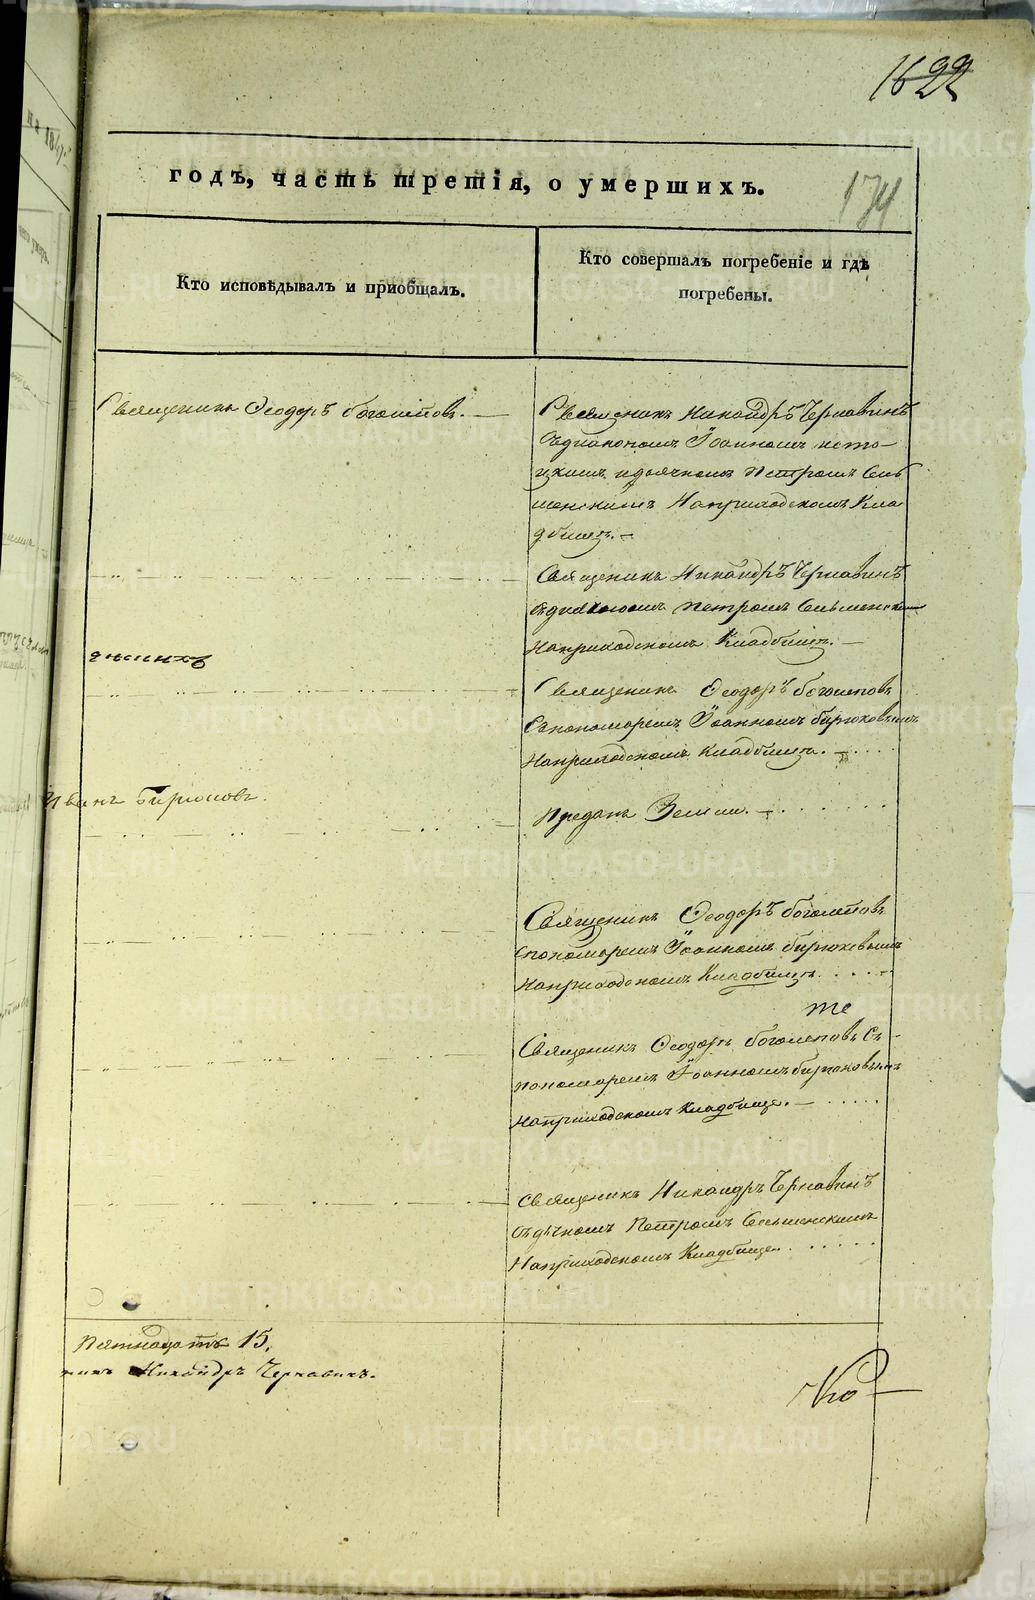 1622
годъ, часть третія, о умершихъ.
174
Кто исповѣдывалъ и пріобщалъ.
Кто совершалъ погребеніе и гдѣ
погребены.
Священникъ Ѳеодоръ Боголѣповъ. —
Священникъ Никандръ Чернавинъ
съ діакономъ Іоанномъ
и дьячкомъ Петромъ
На приходскомъ Кла
дбищѣ. —
Священникъ Никандръ Чернавинъ
Петромъ
На приходскомъ Кладбищѣ. —
Священникъ Ѳеодоръ Боголѣповъ
Съ пономаремъ Іоанномъ Бирюковымъ
На приходскомъ Кладбищѣ. —
Иванъ Бирюковъ.
Преданъ Земли. —
Священникъ Ѳеодоръ Боголѣповъ
съ пономаремъ Іоанномъ Бирюковымъ
На приходскомъ Кладбищѣ
те
Священникъ Ѳеодоръ Боголѣповъ съ
пономаремъ Іоанномъ Бирюковымъ
На приходскомъ Кладбище. —
Священникъ Никандръ Чернавинъ
Петромъ
На приходскомъ Кладбище.
Пятнадцать 15.
никъ Никандръ Чернавинъ.
METRIKI.GASO-URAL.RU